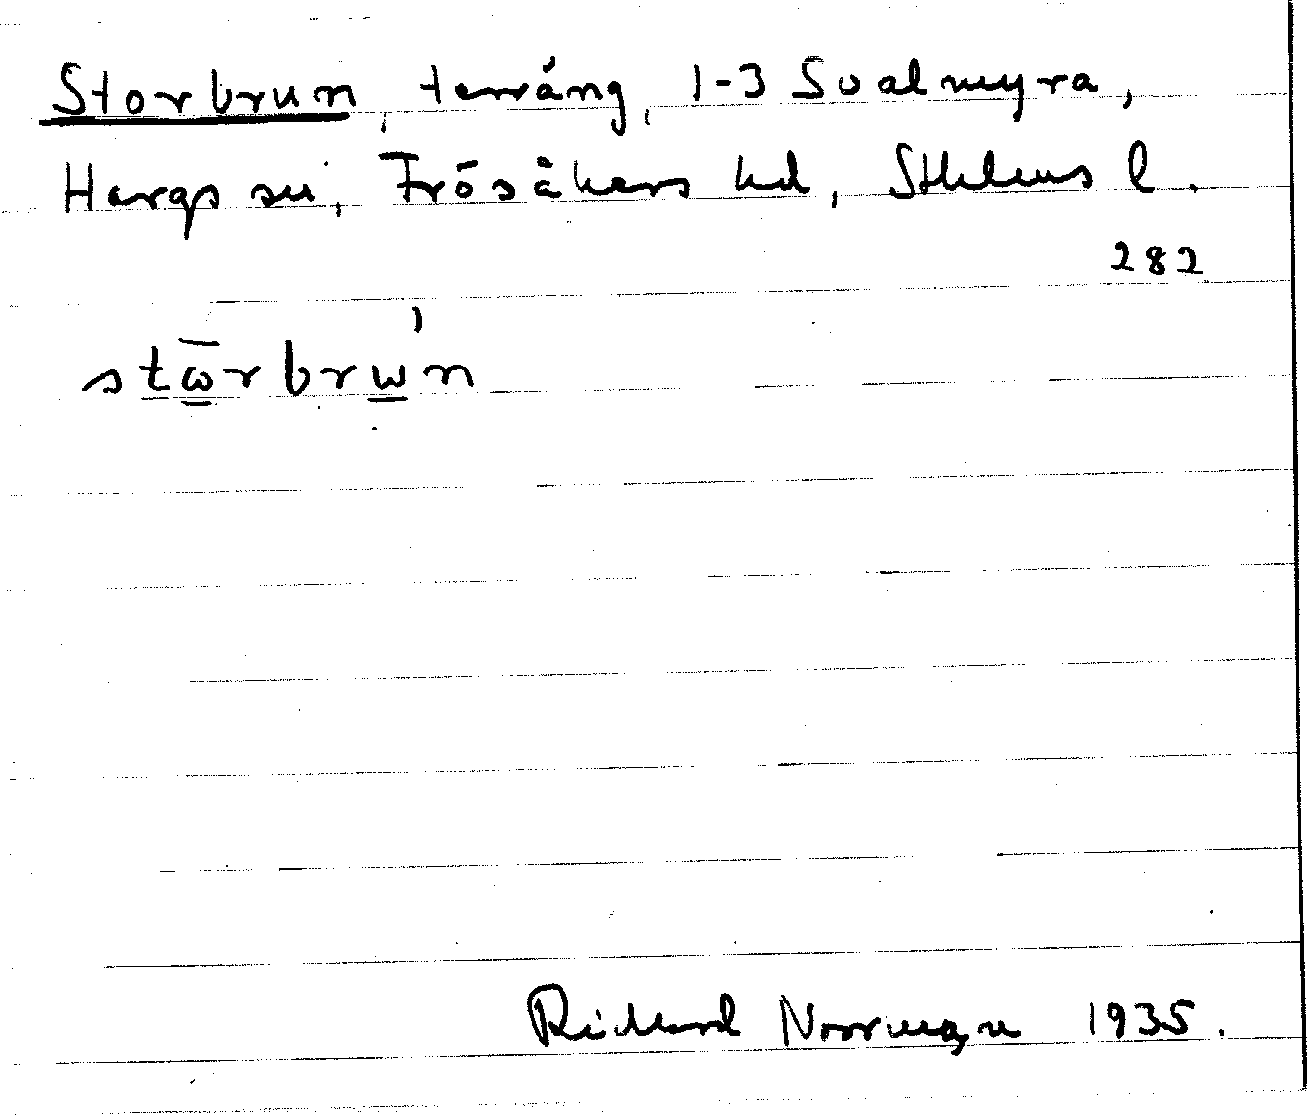 Storbrun, terräng, 1-3 Svalmyra,
Hargs sn, Frösåkers hd, Sthlms l.
282
stω̄rbrω'n
Rickard Norrman 1935.